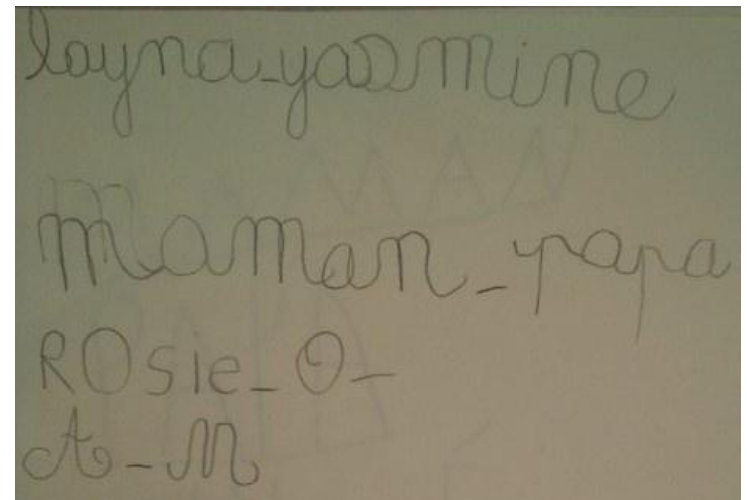 layna-yasmine
maman-papa
ROSie-O-
A-M